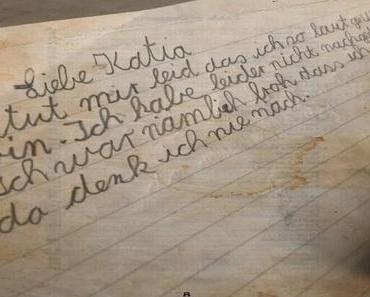 Liebe Katia
tut mir leid das ich so laut
in. Ich habe leider nicht
ich war nämlich froh dass ich
da denk ich nie nach.